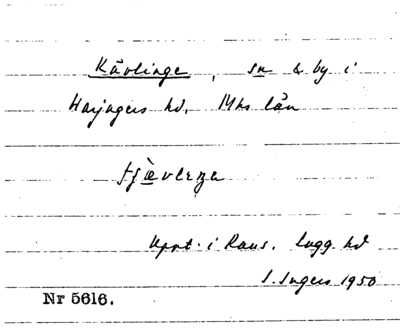 Kävlinge, sn & by i
Harjagers hd, Mhs län
tjævleŋa
Uppt. i Raus, Lugg. hd
I. Ingers 1950
Nr 5616.